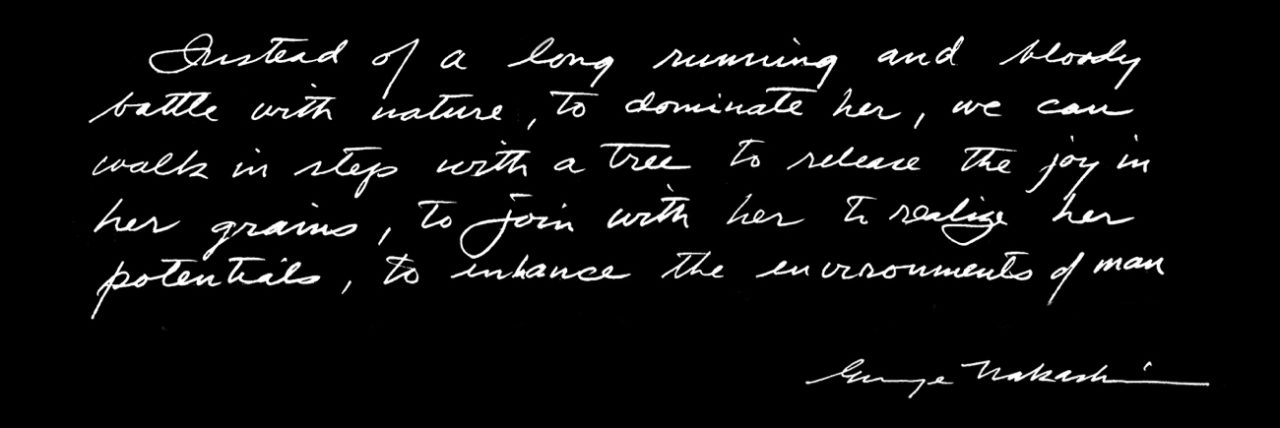 Instead of a long running and bloody
battle with nature, to dominate her, we can
walk in step with a tree to release the joy in
her grains, to join with her to realize her
potentials, to enhance the environments of man
George Nakashima